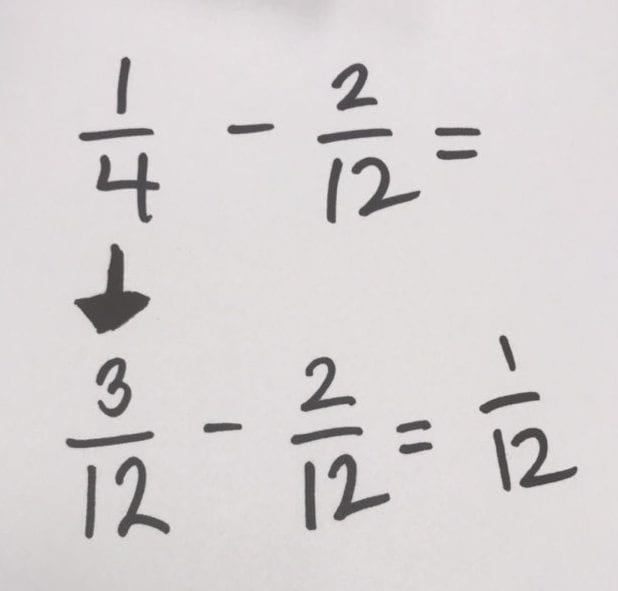 1/4 - 2/12 =
3/12 - 2/12 = 1/12